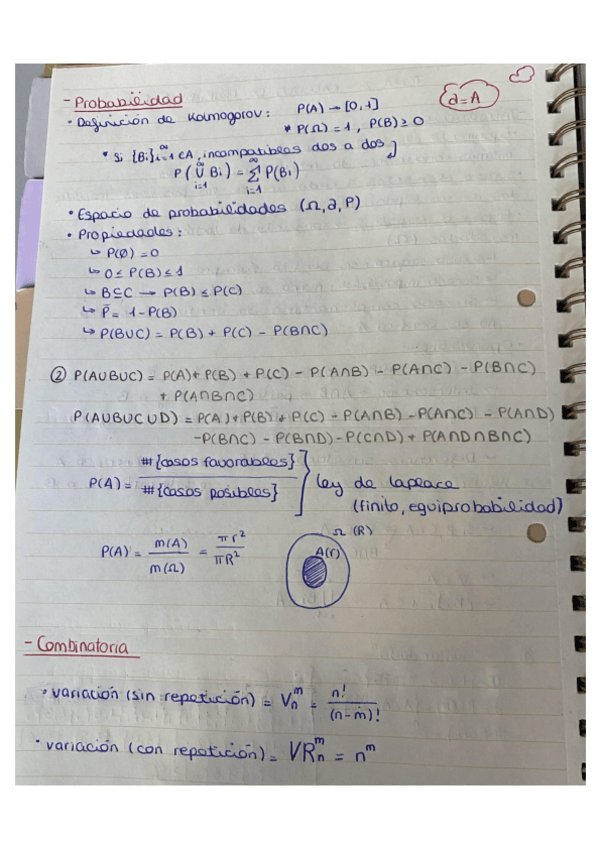 - Probabilidad
∂=A
• Definición de Kolmogorov: P(A) → [0,1]
* P(Ω) = 1, P(B) ≥ 0
• Si {Bi}∞i=1 ∈A, incompatibles dos a dos
P(∞⋃i=1 Bi) = ∞∑i=1 P(Bi)
• Espacio de probabilidades (Ω, ∂, P)
• Propiedades:
↳ P(Ø) = 0
↳ 0 ≤ P(B) ≤ 1
↳ B⊆C → P(B) ≤ P(C)
↳ P̄ = 1 - P(B)
↳ P(B∪C) = P(B) + P(C) - P(B∩C)
② P(A∪B∪C) = P(A) + P(B) + P(C) - P(A∩B) - P(A∩C) - P(B∩C)
+ P(A∩B∩C)
P(A∪B∪C∪D) = P(A) + P(B) + P(C) - P(A∩B) - P(A∩C) - P(A∩D)
-P(B∩C) - P(B∩D) - P(C∩D) + P(A∩D∩B∩C)
P(A) = #{casos favorables} / #{casos posibles} ] ley de laplace
(finito, equiprobabilidad)
P(A) = m(A) / m(Ω) = πr² / πR²
Ω (R)
A(r)
- Combinatoria
• variación (sin repetición) = Vₙᵐ = n! / (n-m)!
• variación (con repetición) = VRₙᵐ = nᵐ